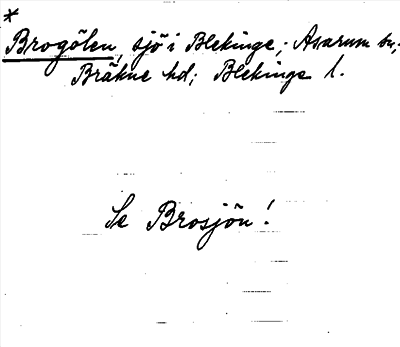 *
Brogölen, sjö i Blekinge; Asarum sn;
Bräkne hd; Blekinge l.
Se Brosjön!